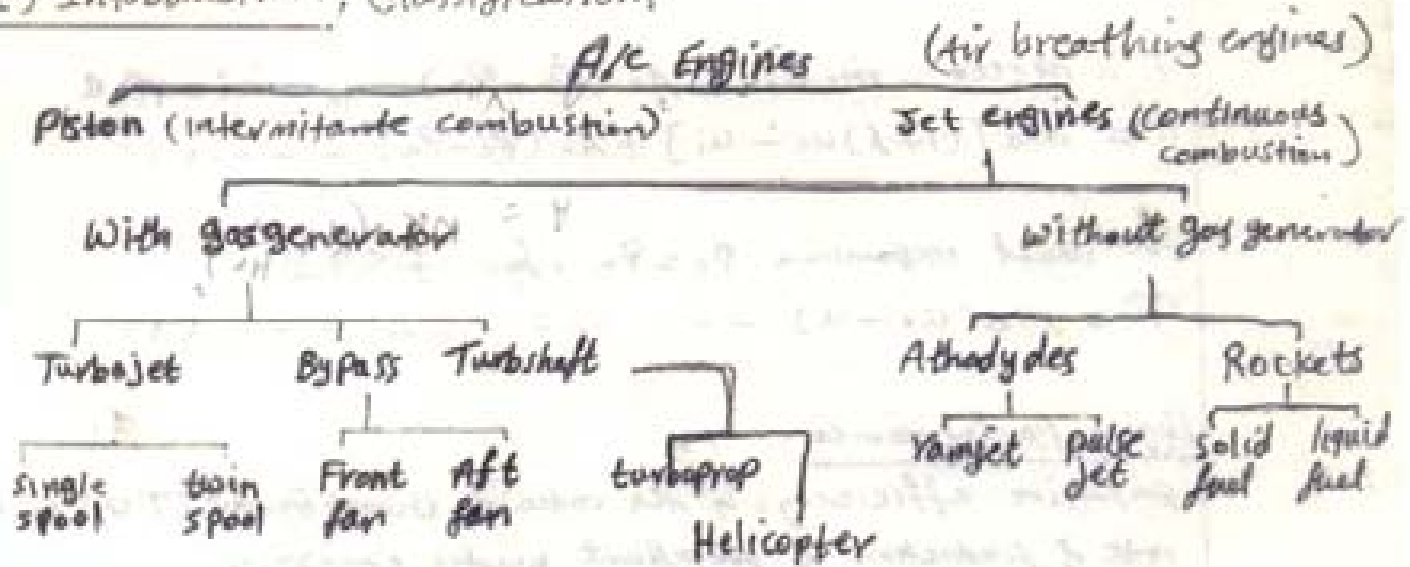 Classification,
A/c Engines (Air breathing engines)
Piston (intermitante combustion) Jet engines (Continuous
combustion)
With gas generator without gas generator
Turbojet Bypass Turbshaft Athodydes Rockets
single spool twin spool Front fan Aft fan turboprop Helicopter ramjet pulse jet solid fuel liquid fuel